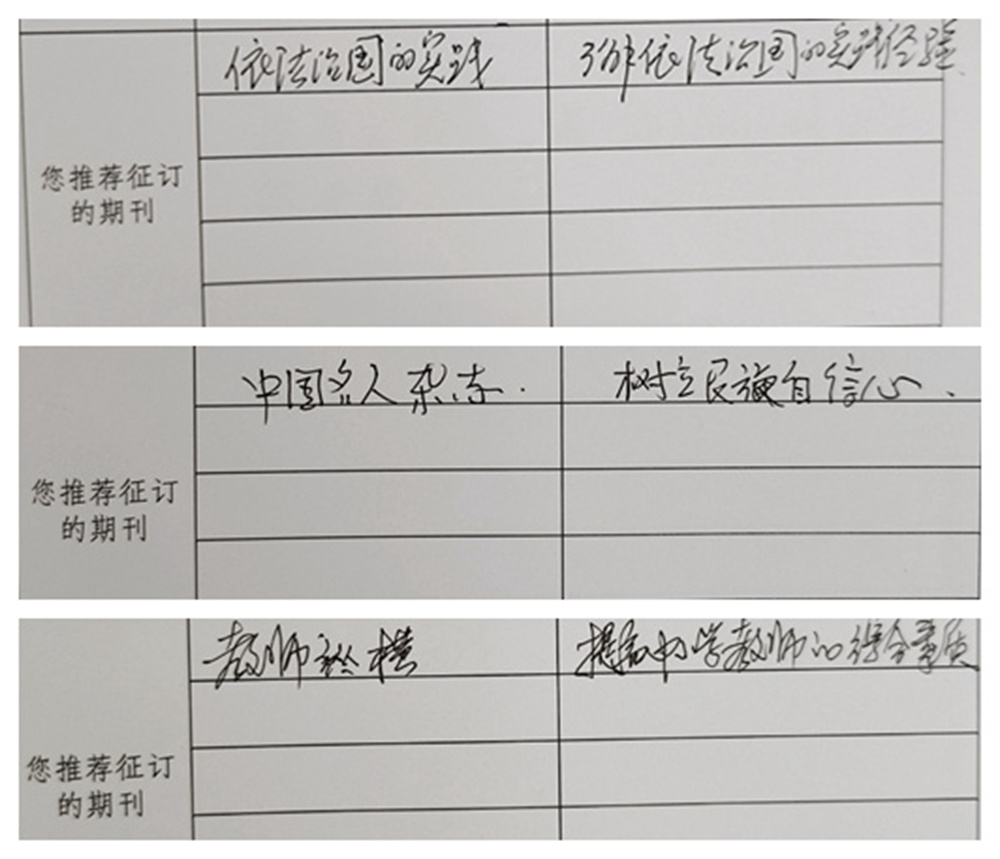 依法治国的实践 了解依法治国的实践经验
您推荐征订
的期刊
中国名人杂志. 树立民族自信心、
您推荐征订
的期刊
教师纵横 提高中学教师的综合素质
您推荐征订
的期刊